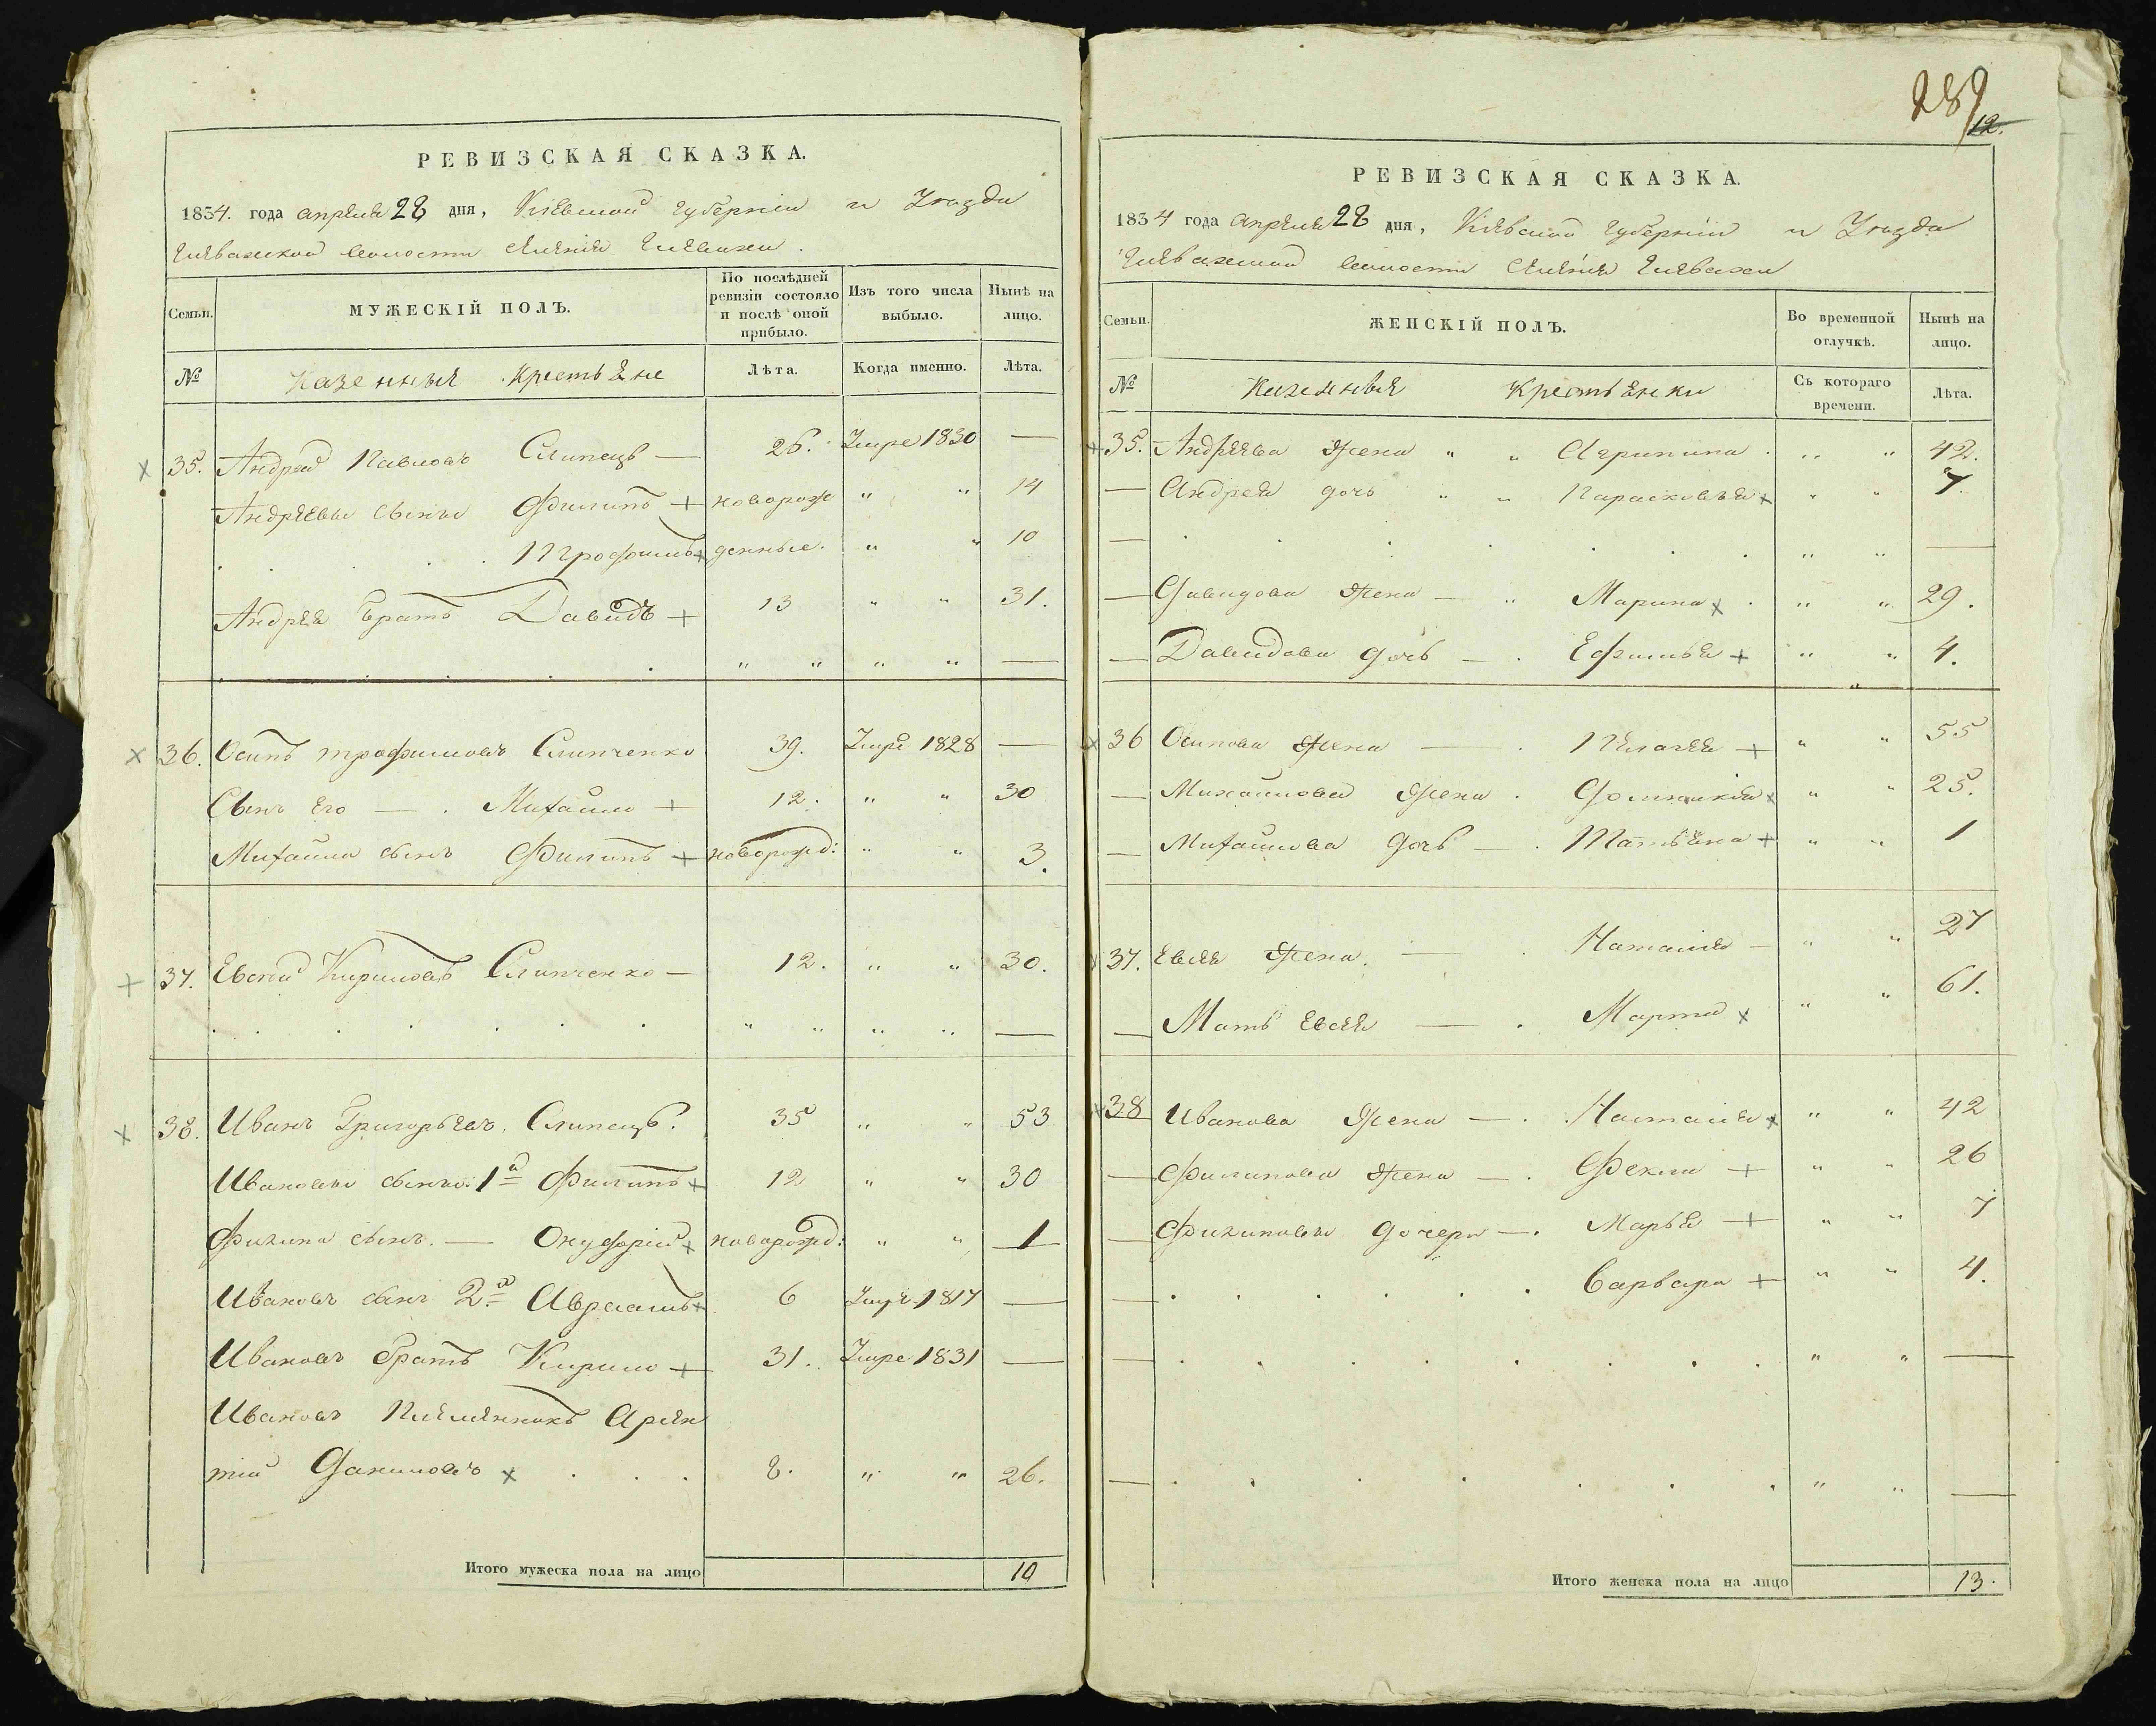 РЕВИЗСКАЯ СКАЗКА.
1834. года апреля 28 дня, Киевской губернии и Уезда
волости селения
Семьи. МУЖЕСКІЙ ПОЛЪ. По послѣдней ревизіи состояло и послѣ оной прибыло. Изъ того числа выбыло. Нынѣ на лицо.
№ Казенныя Крестьяне Лѣта. Когда именно. Лѣта.
35. Андрей Павловъ Слипецъ — 26. Умре 1830 —
Андреевы сыны Филипъ + новорож " " 14
Трофимъ + денные. " " 10
Андрея братъ Давидъ + 13 " " 31.
" " " " —
36. Осипъ Трофимовъ Слипченко 39. Умре 1828 —
Сынъ его — . Михайло + 12. " " 30
Михайла сынъ Филипъ + новорожд: " " 3.
37. Евсей Кириловъ Слипченко — 12. " " 30.
" " " " —
38. Иванъ Григорьевъ. Слипецъ. 35 " " 53
Ивановы сыны: 1й Филипъ + 12 " " 30
Филипа сынъ. — Онуфрій + новорожд: " " 1
Ивановъ сынъ 2й Аврамъ + 6 Умре 1817 —
Ивановъ братъ Кирило + 31. Умре 1831 —
Ивановъ Племянникъ Арсен
тій Даниловъ x 8. " " 26.
Итого мужеска пола на лицо 10
289
12.
РЕВИЗСКАЯ СКАЗКА.
1834 года апреля 28 дня, Киевской губернии и Уезда
волости селения
Семьи. ЖЕНСКІЙ ПОЛЪ. Во временной отлучкѣ. Нынѣ на лицо.
№ Казенныя Крестьянки Съ котораго времени. Лѣта.
35. Андреева жена " " Агрипина . " " 42.
— Андрея дочь " " Парасковья x " " 7.
— " " —
— Давидова жена — " Марина x . " " 29.
— Давидова дочь — . Ефимья + " " 4.
36 Осипова жена — . Пелагея + " " 55
— Михайлова жена . Домникия x " " 25.
— Михайлова дочь — . Татьяна + " " 1
37. Евсея жена. — . Наталия — " " 27
— Мать Евсея — . Марта x " " 61.
38 Иванова жена — . Наталия x " " 42
— Филипова жена — . Фекла + " " 26
— Филиповы дочери — . Марья + " " 7
— Варвара + " " 4.
— " " —
— " " —
Итого женска пола на лицо 13.